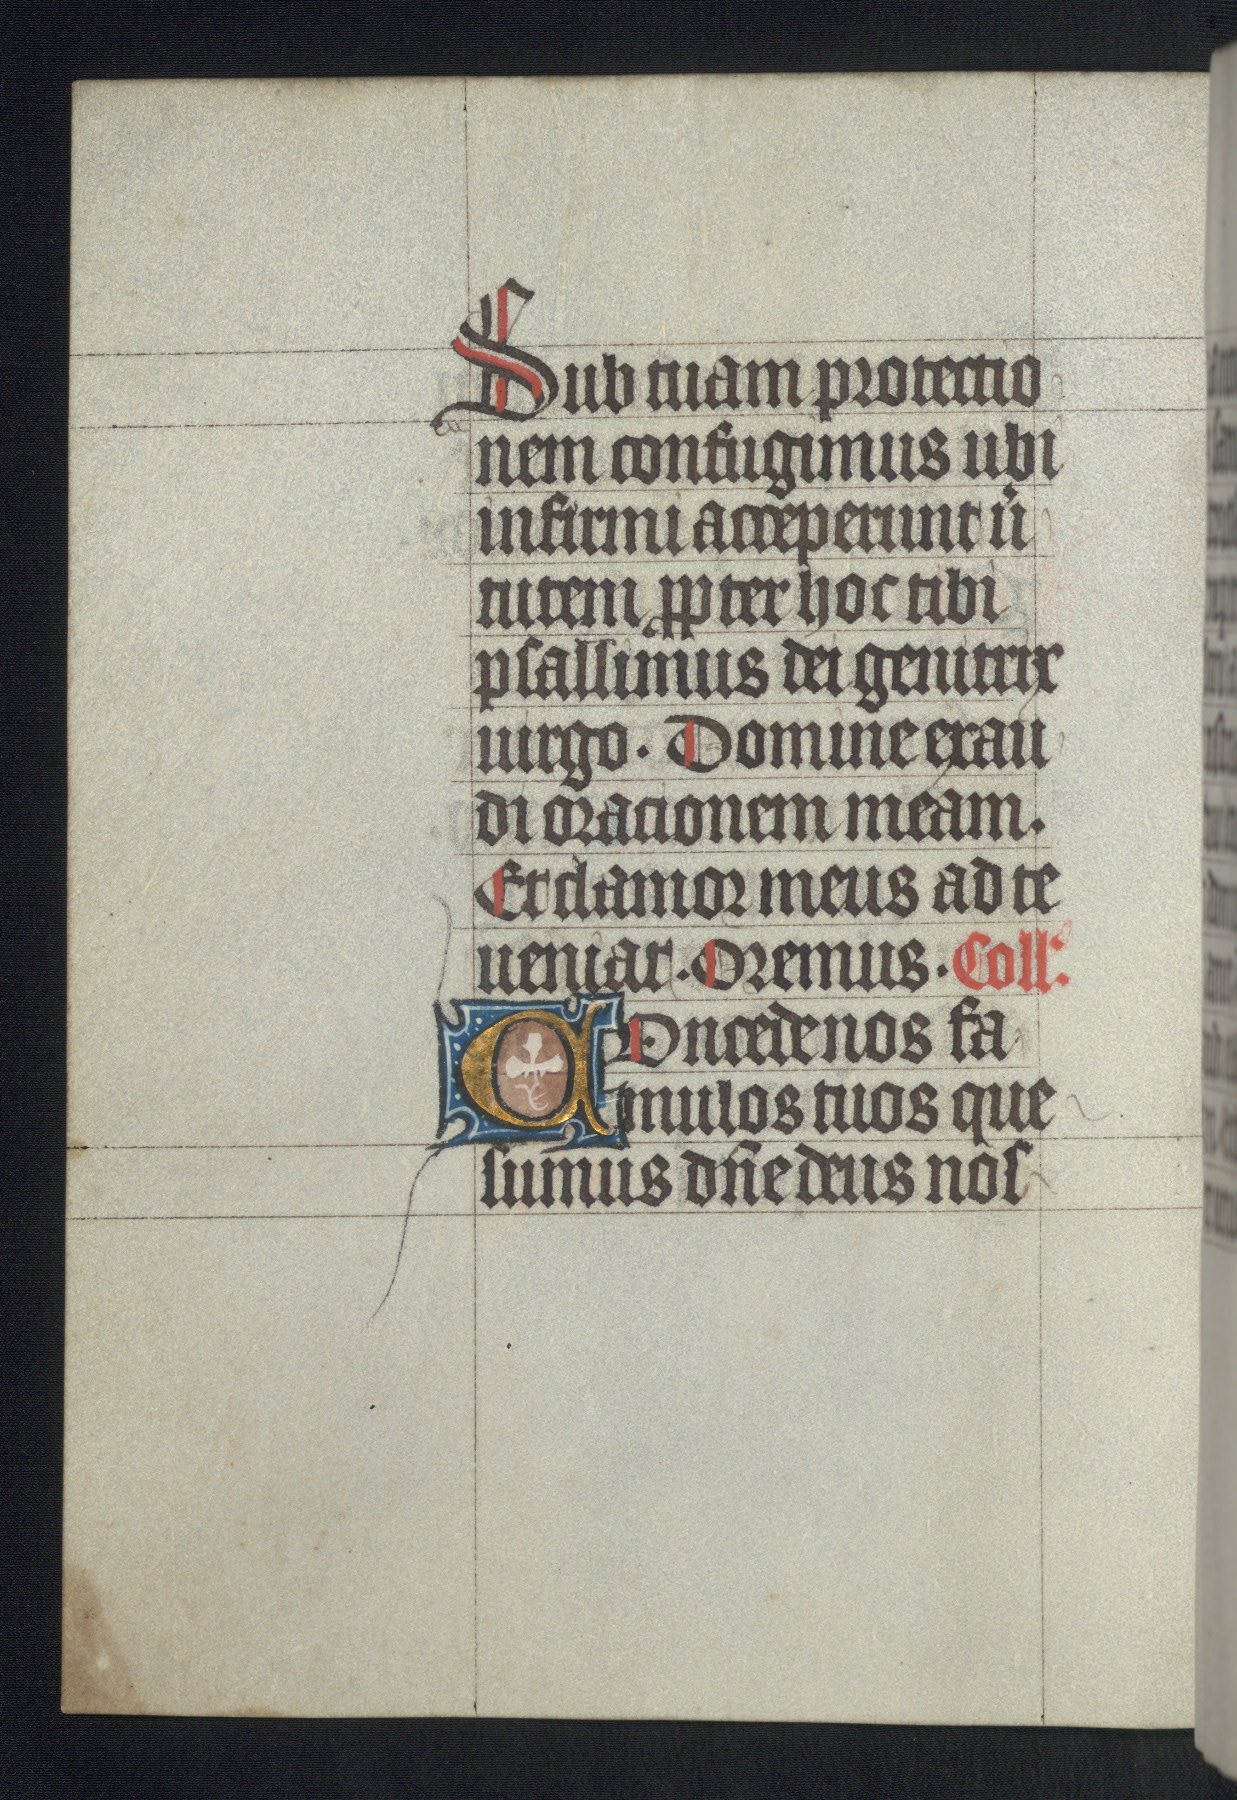 Sub tuam protectio
nem confugimus ubi
infirmi acceperunt ũ
tutem ꝓpter hoc tibi
psallimus dei genitrix
uirgo. Domine exau
di orationem meam.
Et clamor meus ad te
ueniat. Oremus. Coll:
COncede nos fa
mulos tuos que
sumus dñe deus nōs